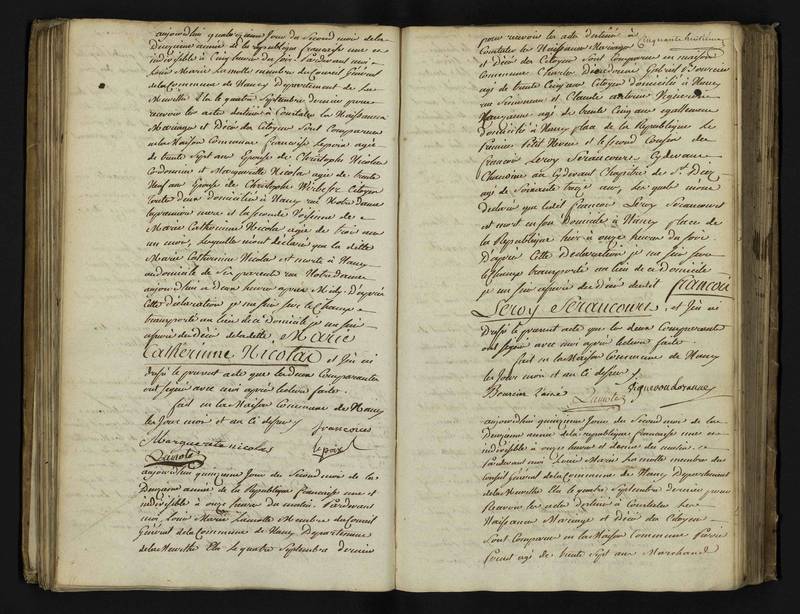 aujourdhui quatorzieme Jour du Second moi de la
Deuxieme année de la republique francaise une et
indivisible à Cinq heures du soir. Pardevant moi
Louis Marie Lamotte membre du Conseil Général
de la Commune de Nancy Département de la
Meurthe Elu le quatre Septembre dernier pour
recevoir les actes destinés à Constater les Naissances
Mariages et Décès des Citoyens Sont Comparues
en la Maison Commune francoise agée
de trente Sept ans Epouse de Christophe Nicolas
Cordonnier et Marguerite Nicolas agée de trente
Neuf ans Epouse de Christophe Citoyen
toute deux domiciliées à Nancy rue Notre Dame
la premiere mere et la seconde de
Marie Catherinne Nicolas agée de trois ans
un mois, lesquelles mont déclaré que la ditte
Marie Catherinne Nicolas est morte à Nancy
au domicile de ses parents rue Notre Dame
aujourdhui a deux heures après Midy. D'après
Cette déclaration je me suis sur le Champ
transporté au lieu de ce domicile je me suis
assuré du Décès de ladite, Marie
Catherinne Nicolas et J'en ai
Dressé le present acte que les deux Comparantes
ont signé avec moi après lecture faite.
fait en la Maison Commune de Nancy
les Jour mois et an ci dessus
francoise
Marguerite nicolas
lepoix
Lamotte
aujourdhui quinzieme Jour du Second moi de la
Deuxieme année de la Republique francaise une et
indivisible à onze heures du matin. Pardevant
moi, Louis Marie Lamotte Membre du Conseil
Général de la Commune de Nancy Departement
de la Meurthe Elu le quatre Septembre dernier
Cinquante huitieme
pour recevoir les actes destinés à
Constater les Naissances Mariages
et Décès des Citoyens Sont comparus en maison
Commune Charles Dieudonné Gabriel
agé de trente Cinq ans Citoyen domicilié à Nancy
rue et Claude antoine
agé de trente Cinq ans egallement
domicilié à Nancy place de la Republique Le
premier Petit Neveu et le second Cousin de
francois Leroy Sérancourt Cydevant
Chanoine au Cydevant Chapitre de St. Diez
agé de Soixante treize ans, lesquels mont
Declaré que ledit francois Leroy Serancourt
est mort en son Domicile à Nancy place de
la Republique hier à onze heures du soir.
D'après Cette Declaration je me suis sur
le Champ transporté au lieu de ce Domicile
je me suis assuré du décès dudit francois
Leroy Sérancourt, et J'en ai
Dressé le present acte que les deux Comparants
ont signé avec moi après lecture faite.
fait en la Maison Commune de Nancy
les Jour mois et an ci dessus
Lamotte
aujourdhui quinzieme Jour du Second moi de la
Deuxieme année de la republique francaise une et
indivisible a onze heures et demie du matin.
Pardevant moi Louis Marie Lamotte membre du
Conseil Général de la Commune de Nancy Departement
de la Meurthe Elu le quatre Septembre dernier pour
Recevoir les actes destinés à Constater les
Naissances Mariages et Décès des Citoyens
Sont Comparus en la Maison Commune Pierre
agé de trente Sept ans Marchand